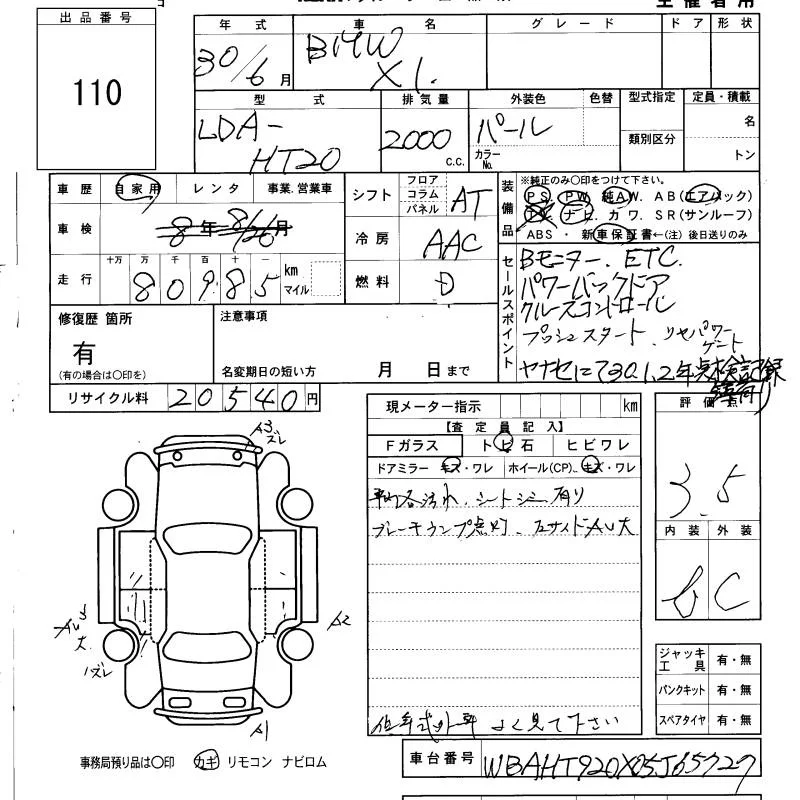 出品番号
110
年式 車名 グレード ドア 形状
30/6月 BMW X1.
型式 排気量 外装色 色替 型式指定 定員・積載
LDA-HT20 2000 c.c. パール カラーNo. 類別区分 名 トン
車歴 自家用 レンタ 事業.営業車
車検 8年 8/26月
走行 十万 万 千 百 十 一 km マイル
80985
シフト フロア コラム パネル AT
冷房 AAC
燃料 D
装備品 ※純正のみ○印をつけて下さい。
PS. PW. 純AW. AB(エアバック)
TV. ナビ. カワ. SR(サンルーフ)
ABS ・ 新車保証書←(注) 後日送りのみ
セールスポイント
Bモニター. ETC.
パワーバックドア
クルーズコントロール
プッシュスタート.
ヤナセにて30.1.2年点検記録簿有り
修復歴 箇所
有
(有の場合は○印を)
注意事項
名変期日の短い方 月 日まで
リサイクル料 20540円
現メーター指示 km
【査定員記入】
Fガラス トビ石 ヒビワレ
ドアミラー キズ・ワレ ホイール(CP). キズ・ワレ
シートシミ有り
ブレーキランプ点灯.
よく見て下さい
評価点
3.5
内装 外装
C
ジャッキ工具 有・無
パンクキット 有・無
スペアタイヤ 有・無
A3
ズレ
A2
大.
ズレ
A1
事務局預り品は○印 カギ リモコン ナビロム
車台番号 WBAHT920X05J65727